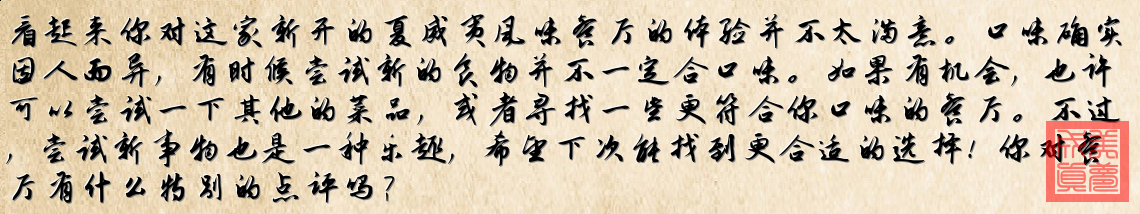 看起来你对这家新开的夏威夷风味餐厅的体验并不太满意。口味确实
因人而异，有时候尝试新的食物并不一定合口味。如果有机会，也许
可以尝试一下其他的菜品，或者寻找一些更符合你口味的餐厅。不过
，尝试新事物也是一种乐趣，希望下次能找到更合适的选择！你对餐
厅有什么特别的点评吗？
美梦成真